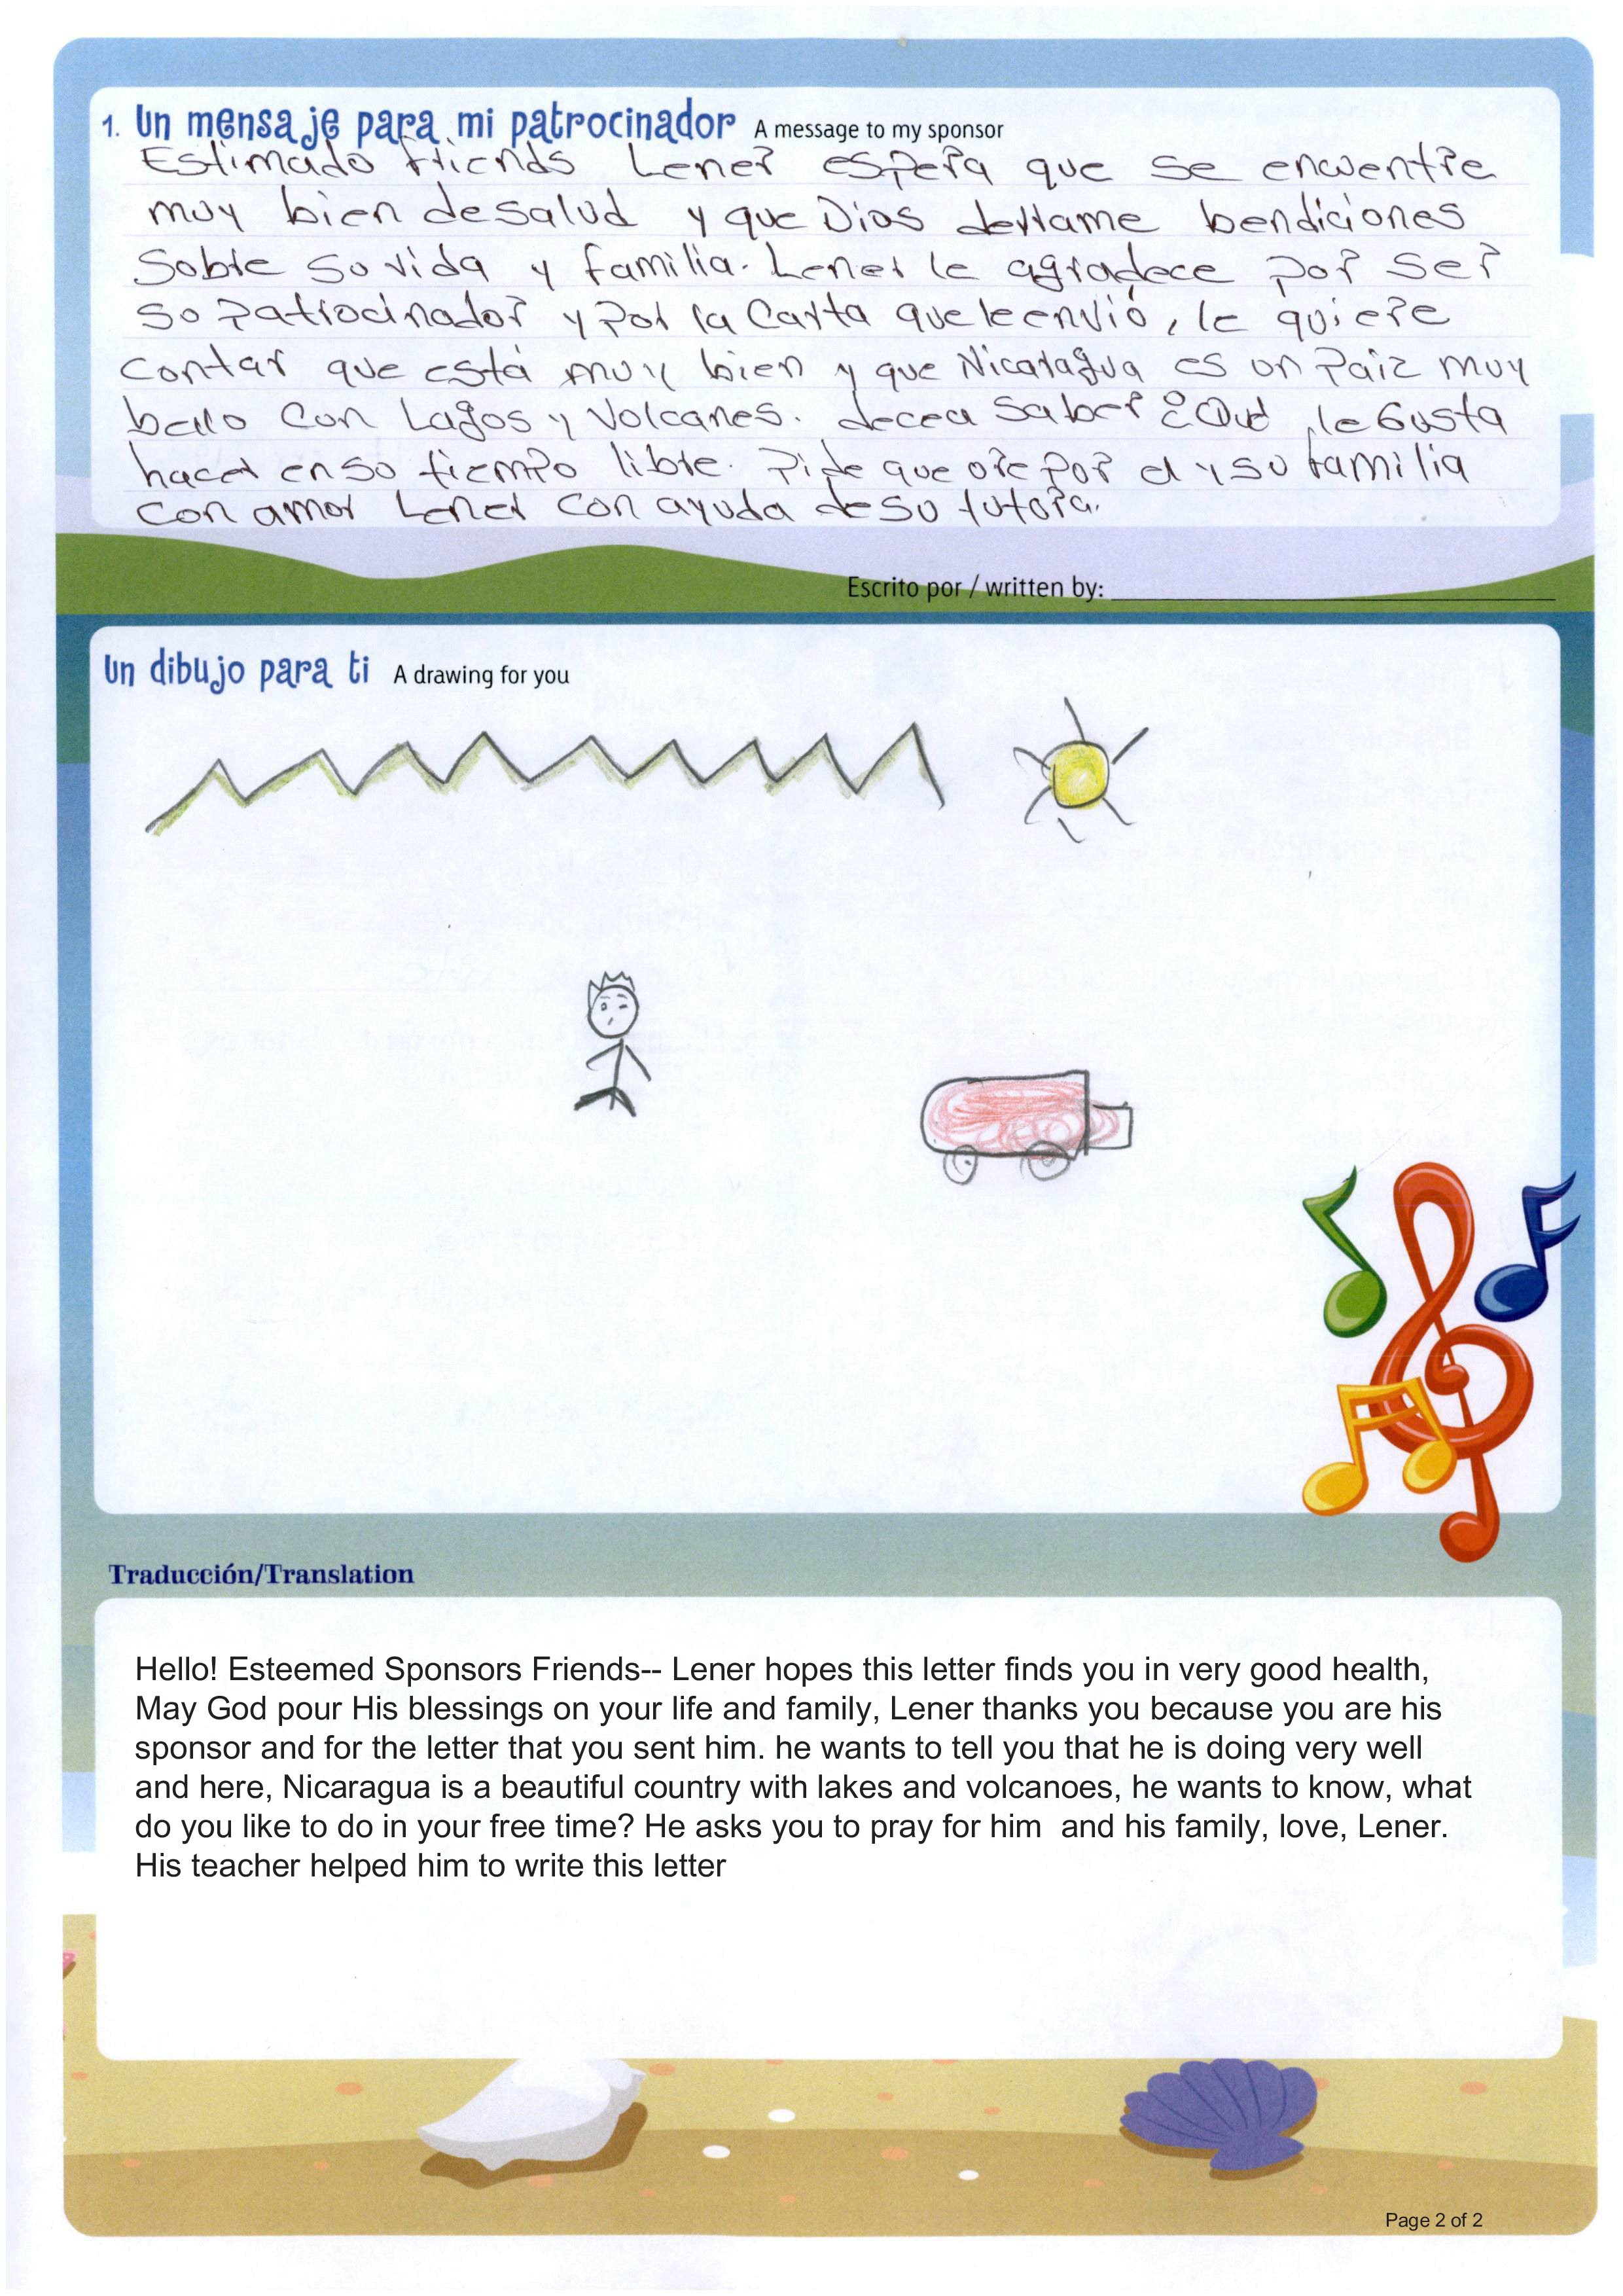 1. Un mensaje para mi patrocinador A message to my sponsor
Estimado friends Lener espera que se encuentre
muy bien de salud y que Dios derrame bendiciones
Sobre su vida y familia. Lener le agradece por ser
su Patrocinador y por la Carta que le envió, le quiere
Contar que está muy bien y que Nicaragua es un Paiz muy
bello Con Lagos y Volcanes. decea Saber ¿Qué le Gusta
hacer en su tiempo libre. Pide que ore por el y su familia
Con amor Lener Con ayuda de su tutora.
Escrito por / written by:
Un dibujo para ti A drawing for you
Traducción/Translation
Hello! Esteemed Sponsors Friends-- Lener hopes this letter finds you in very good health,
May God pour His blessings on your life and family, Lener thanks you because you are his
sponsor and for the letter that you sent him. he wants to tell you that he is doing very well
and here, Nicaragua is a beautiful country with lakes and volcanoes, he wants to know, what
do you like to do in your free time? He asks you to pray for him  and his family, love, Lener.
His teacher helped him to write this letter
Page 2 of 2